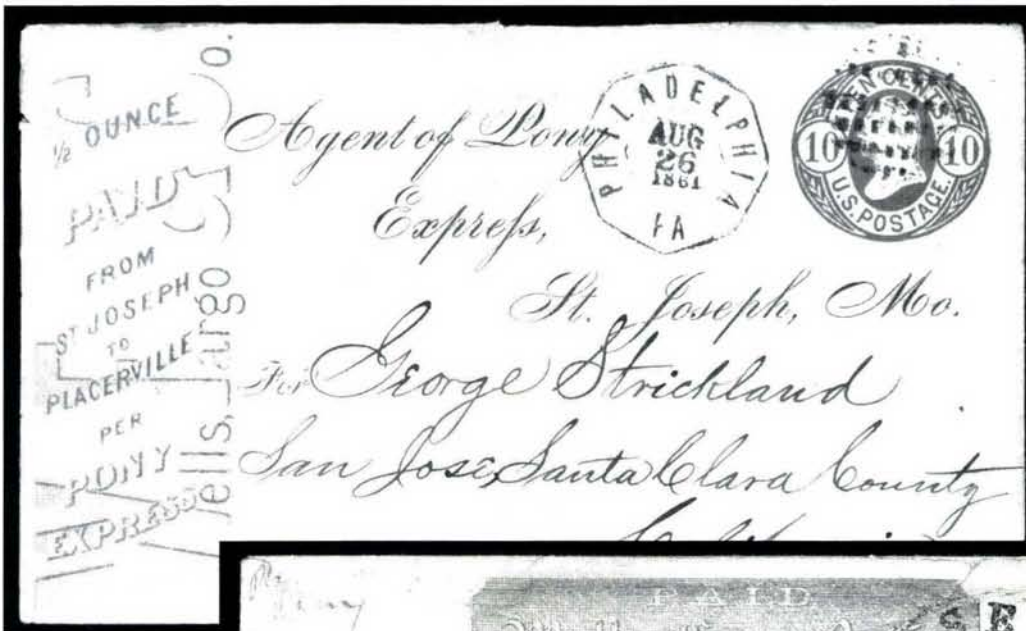 ½ OUNCE
PAID
FROM
ST JOSEPH
TO
PLACERVILLE
PER
PONY
EXPRESS
Wells, Fargo
O.
Agent of Pony
Express,
St. Joseph, Mo.
For George Strickland
San Jose, Santa Clara County
California
PHILADELPHIA
AUG
26
1861
PA
TEN CENTS
10 10
U.S. POSTAGE.
PAID
E